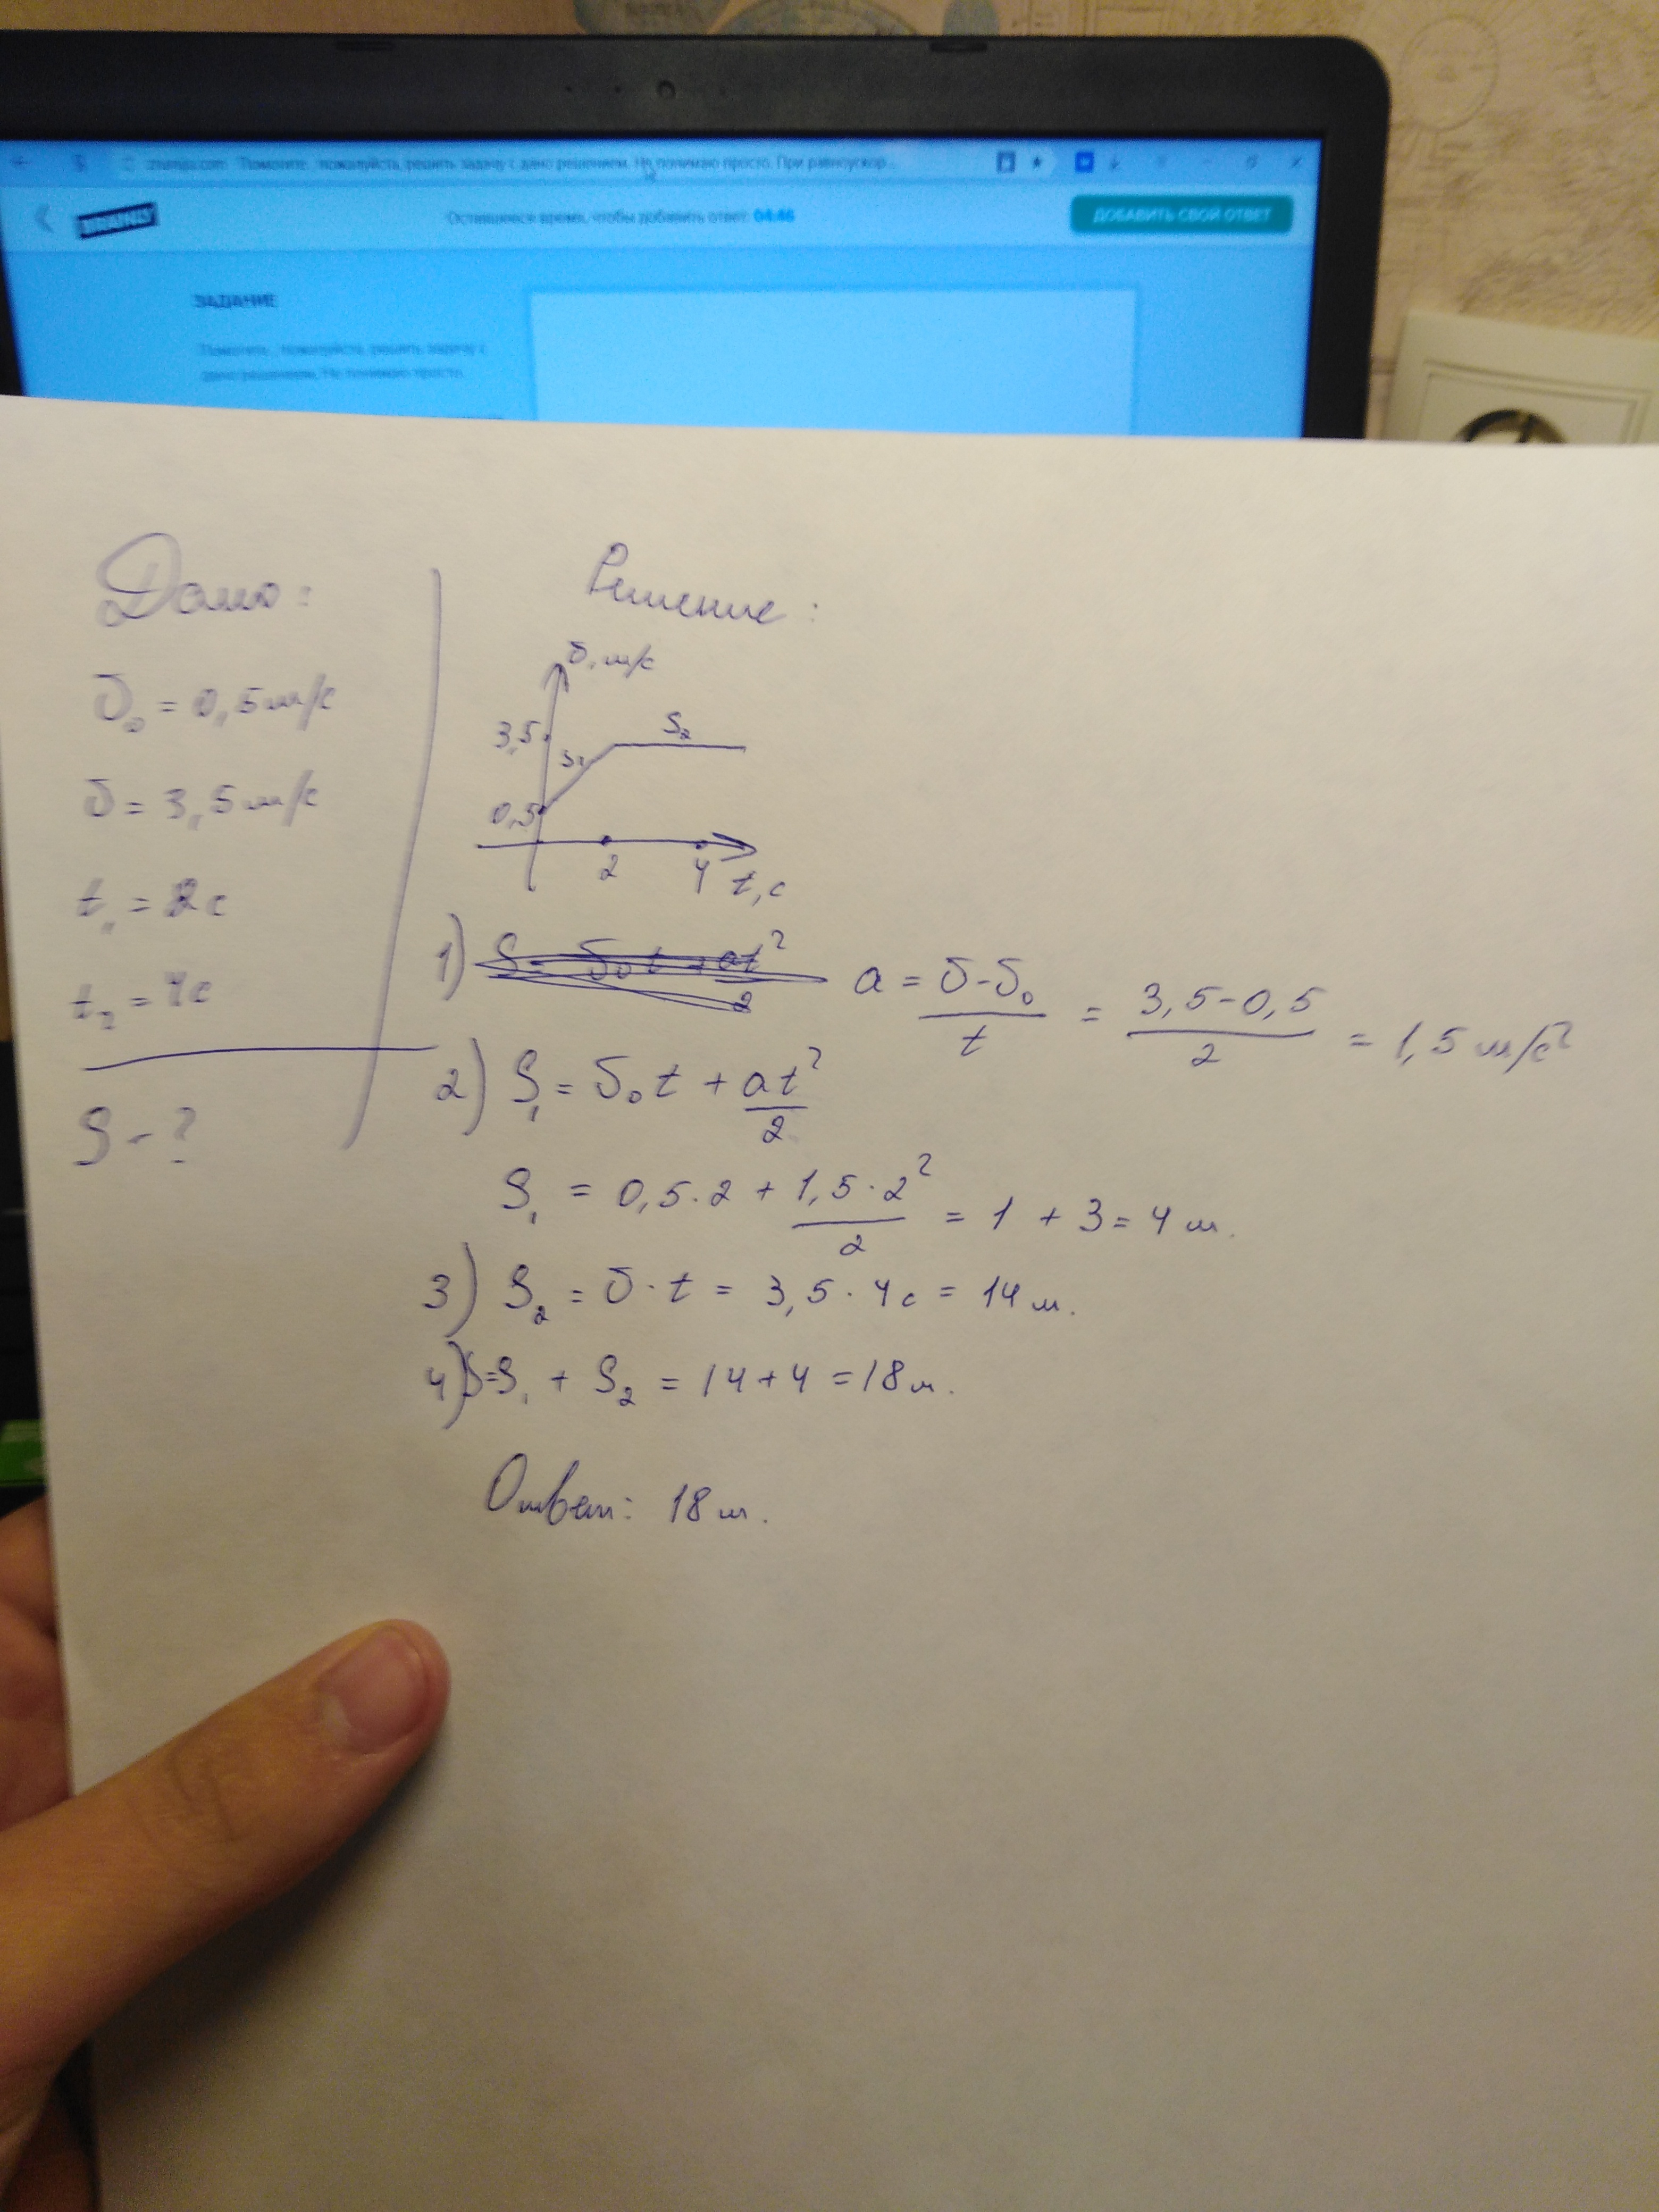 znanija.com Помогите, пожалуйста, решить задачу с дано решением. Не понимаю просто. При равноускор...
BRAINLY
Оставшееся время, чтобы добавить ответ: 04:46
ДОБАВИТЬ СВОЙ ОТВЕТ
ЗАДАНИЕ
Помогите, пожалуйста, решить задачу с
дано решением. Не понимаю просто.
Дано:
υ₀ = 0,5 м/с
υ = 3,5 м/с
t₁ = 2с
t₂ = 4с
S - ?
Решение:
υ, м/с
3,5
S₁
S₂
0,5
2
4
t, с
1) S = υ₀t + at²/2 a = (υ-υ₀)/t = (3,5-0,5)/2 = 1,5 м/с²
2) S₁ = υ₀t + at²/2
S₁ = 0,5·2 + 1,5·2²/2 = 1 + 3 = 4 м.
3) S₂ = υ·t = 3,5·4с = 14 м.
4) S=S₁ + S₂ = 14+4 = 18 м.
Ответ: 18 м.